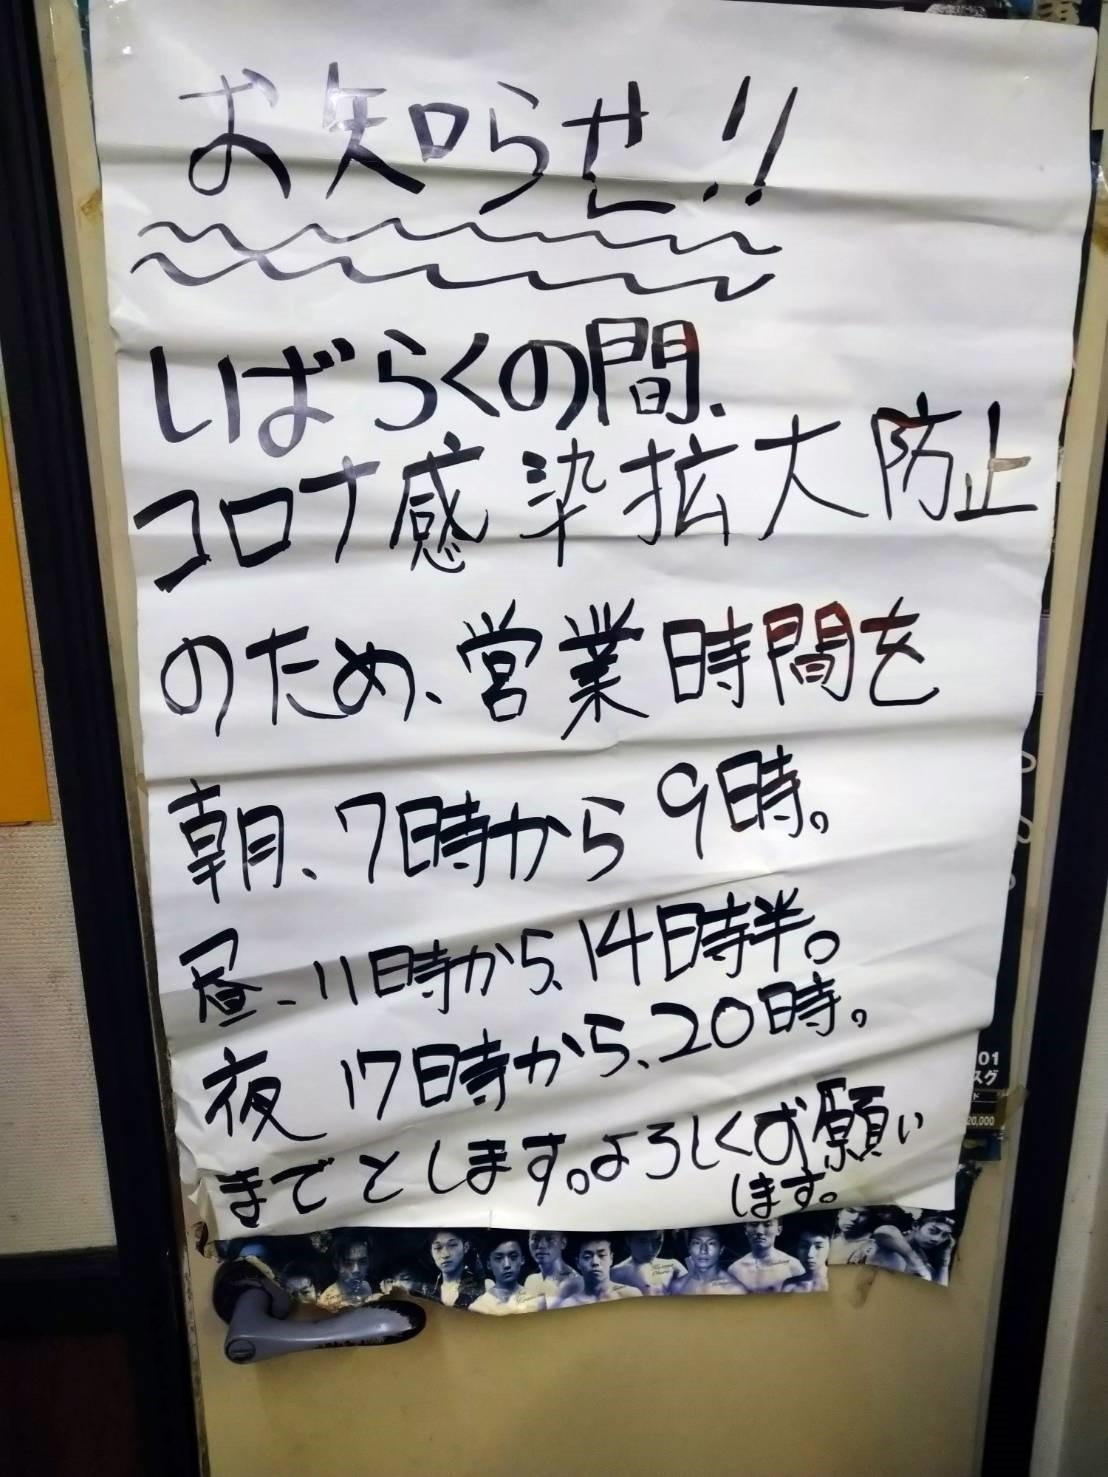 お知らせ!!
しばらくの間、
コロナ感染拡大防止
のため、営業時間を
朝、7時から9時。
昼、11時から、14時半。
夜 17時から、20時。
までとします。よろしくお願い
します。
01
スグ
ド
20,000